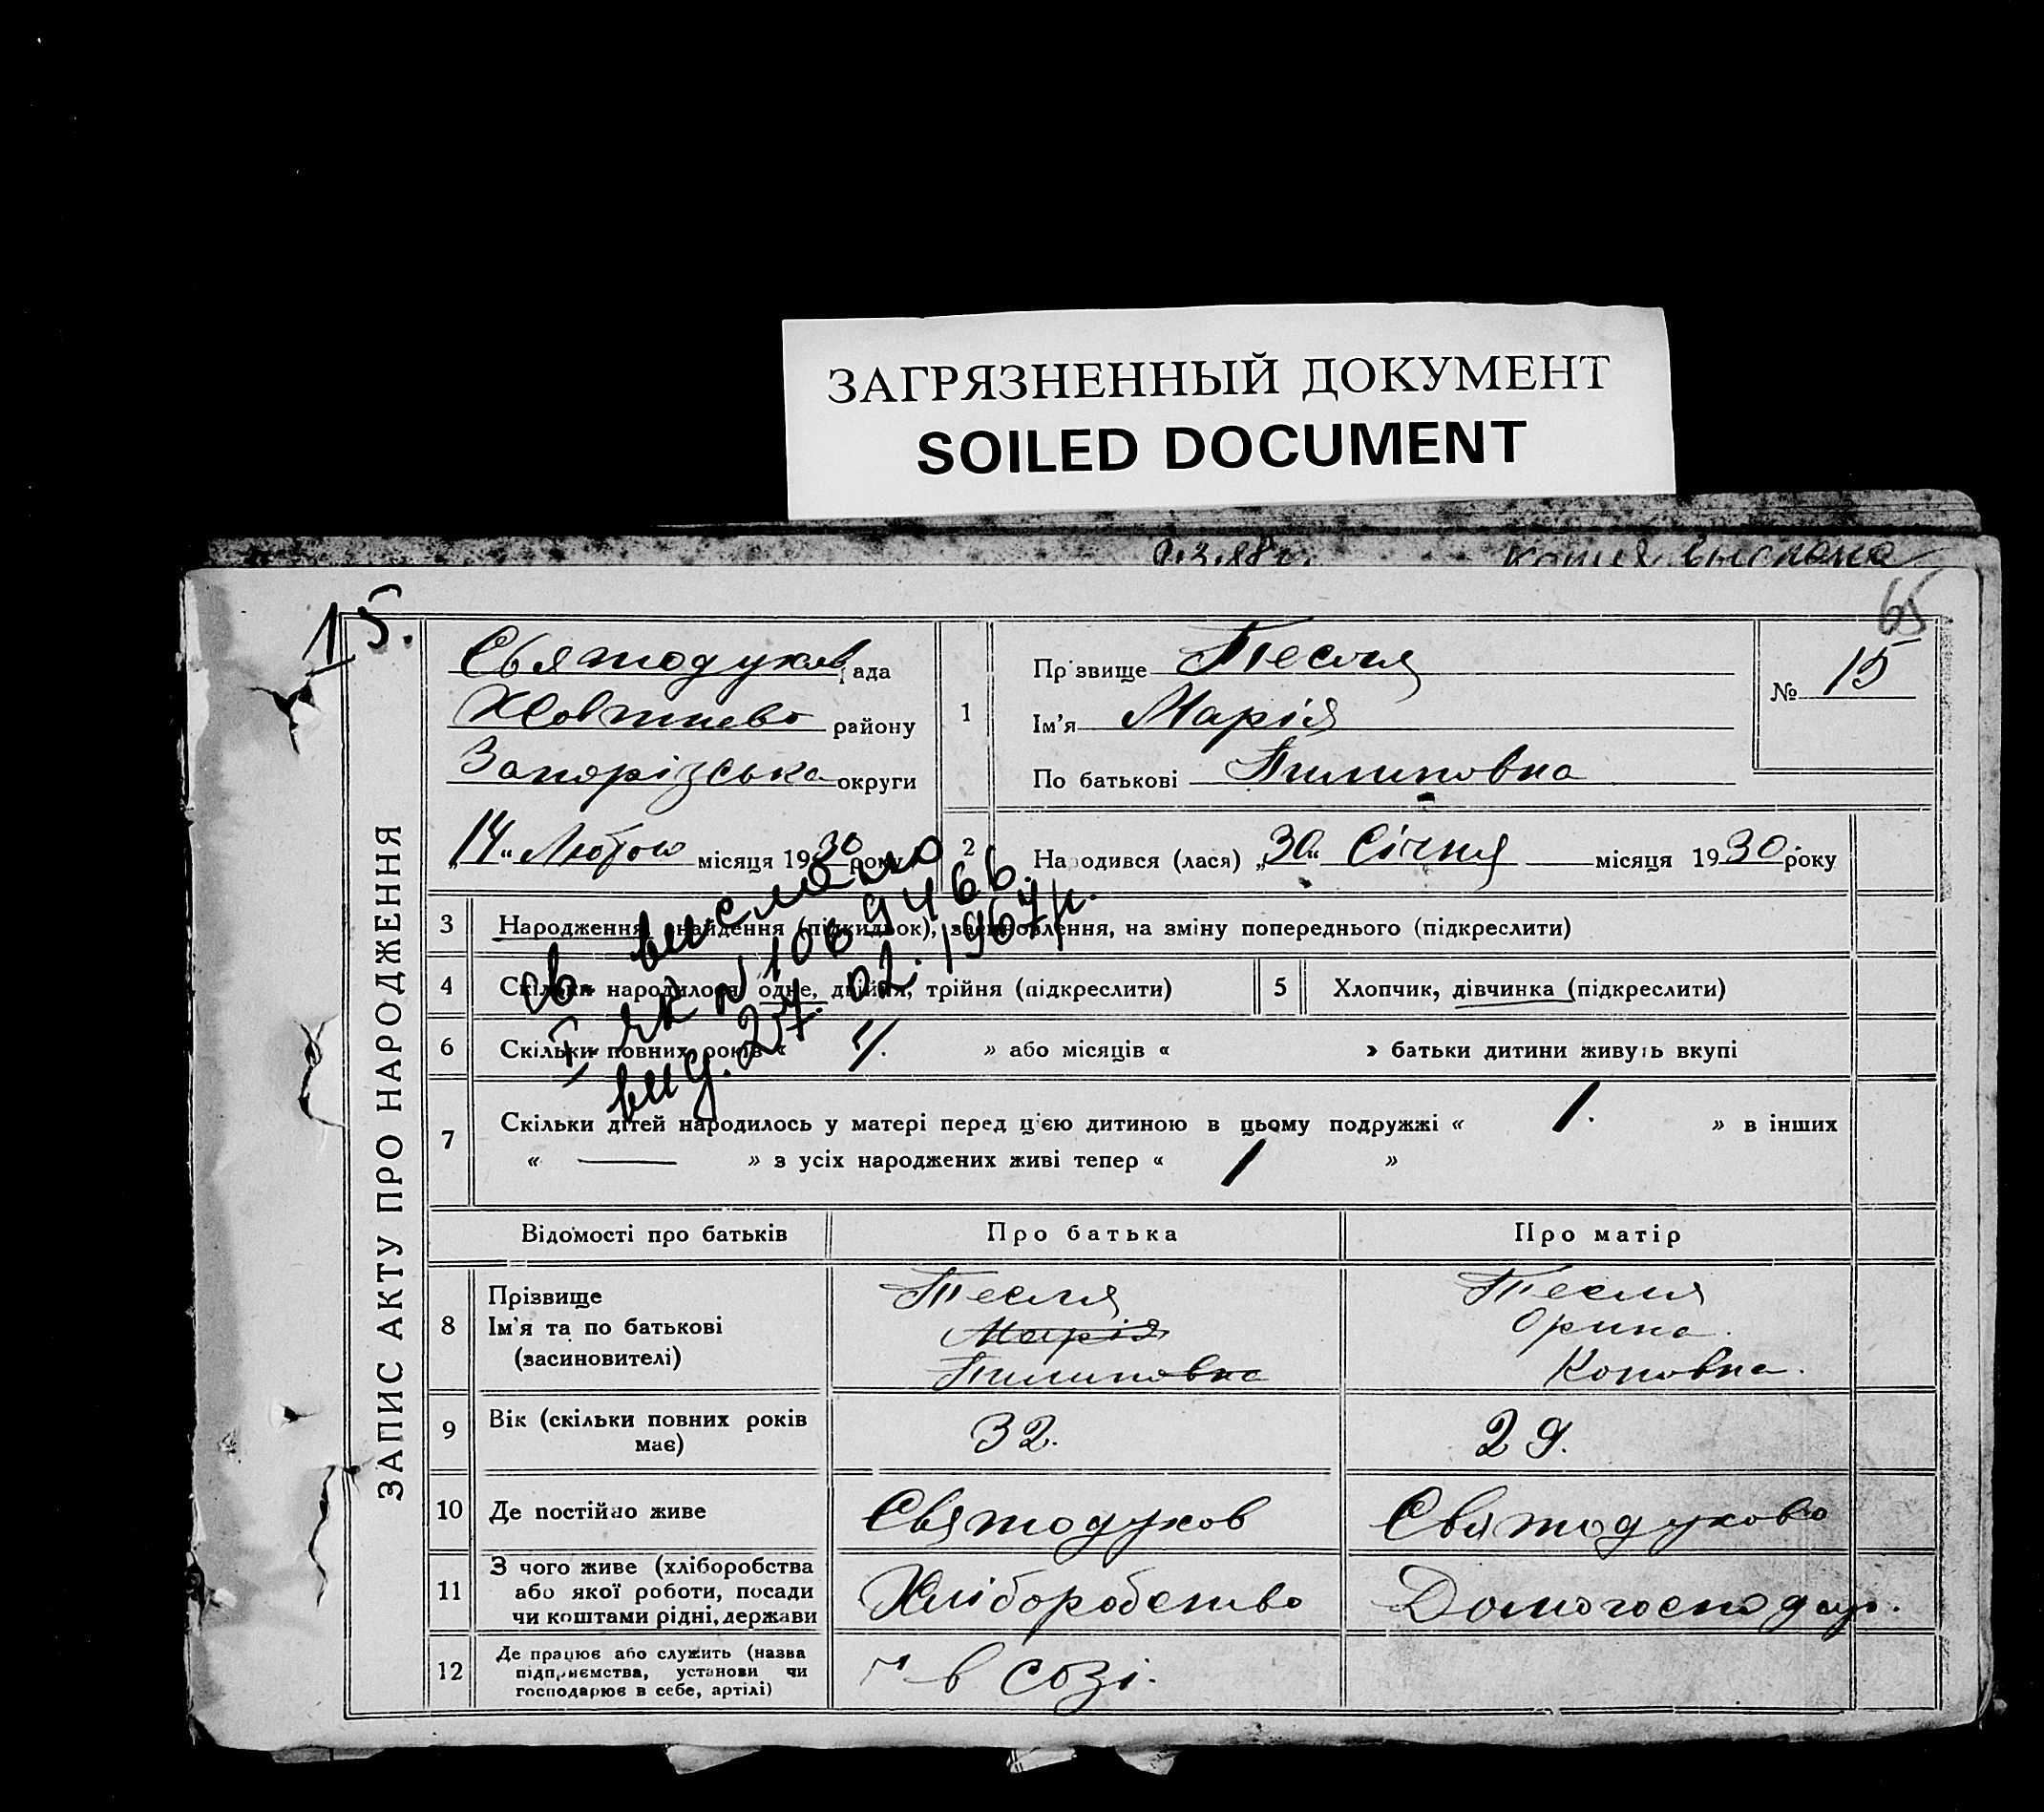 ЗАГРЯЗНЕННЫЙ ДОКУМЕНТ
SOILED DOCUMENT
65
15.
ЗАПИС АКТУ ПРО НАРОДЖЕННЯ
Святодухів рада
Жовтнево району
Запорізська округи
„14“ Лютого місяця 1930 року
1
Прізвище Тесля
Ім’я Марія
По батькові Пилиповна
№ 15
2 Народився (лася) „30“ Січня місяця 1930 року
3 Народження, знайдення (підкидьок), засиновлення, на зміну попереднього (підкреслити)
4 Скільки народилося: одне, двійня, трійня (підкреслити)
5 Хлопчик, дівчинка (підкреслити)
св. вислано
I-ЯР № 1069466.
вид. 27.02.1967р.
6 Скільки повних років « » або місяців « » батьки дитини живуть вкупі
7 Скільки дітей народилось у матері перед цією дитиною в цьому подружжі « 1. » в інших
« — » з усіх народжених живі тепер « 1 »
Відомості про батьків Про батька Про матір
8 Прізвище
Ім’я та по батькові
(засиновителі)
Тесля
Марія
Пилиповна
Тесля
Орина.
Коновна.
9 Вік (скільки повних років має) 32. 29.
10 Де постійно живе Святодухов Святодухово
11 З чого живе (хліборобства
або якої роботи, посади
чи коштами рідні, держави
Хліборобство Домогосподар.
12 Де працює або служить (назва
підприємства, установи чи
господарює в себе, артілі)
в созі.